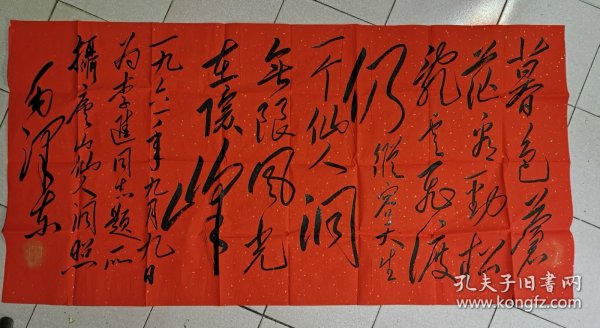 暮色蒼
茫看勁松
亂雲飛渡
仍從容天生
一个仙人洞
無限风光
在險峰
一九六一年九月九日
为李進同志題所
攝庐山仙人洞照
毛澤东
孔夫子旧书网
www.kongfz.com